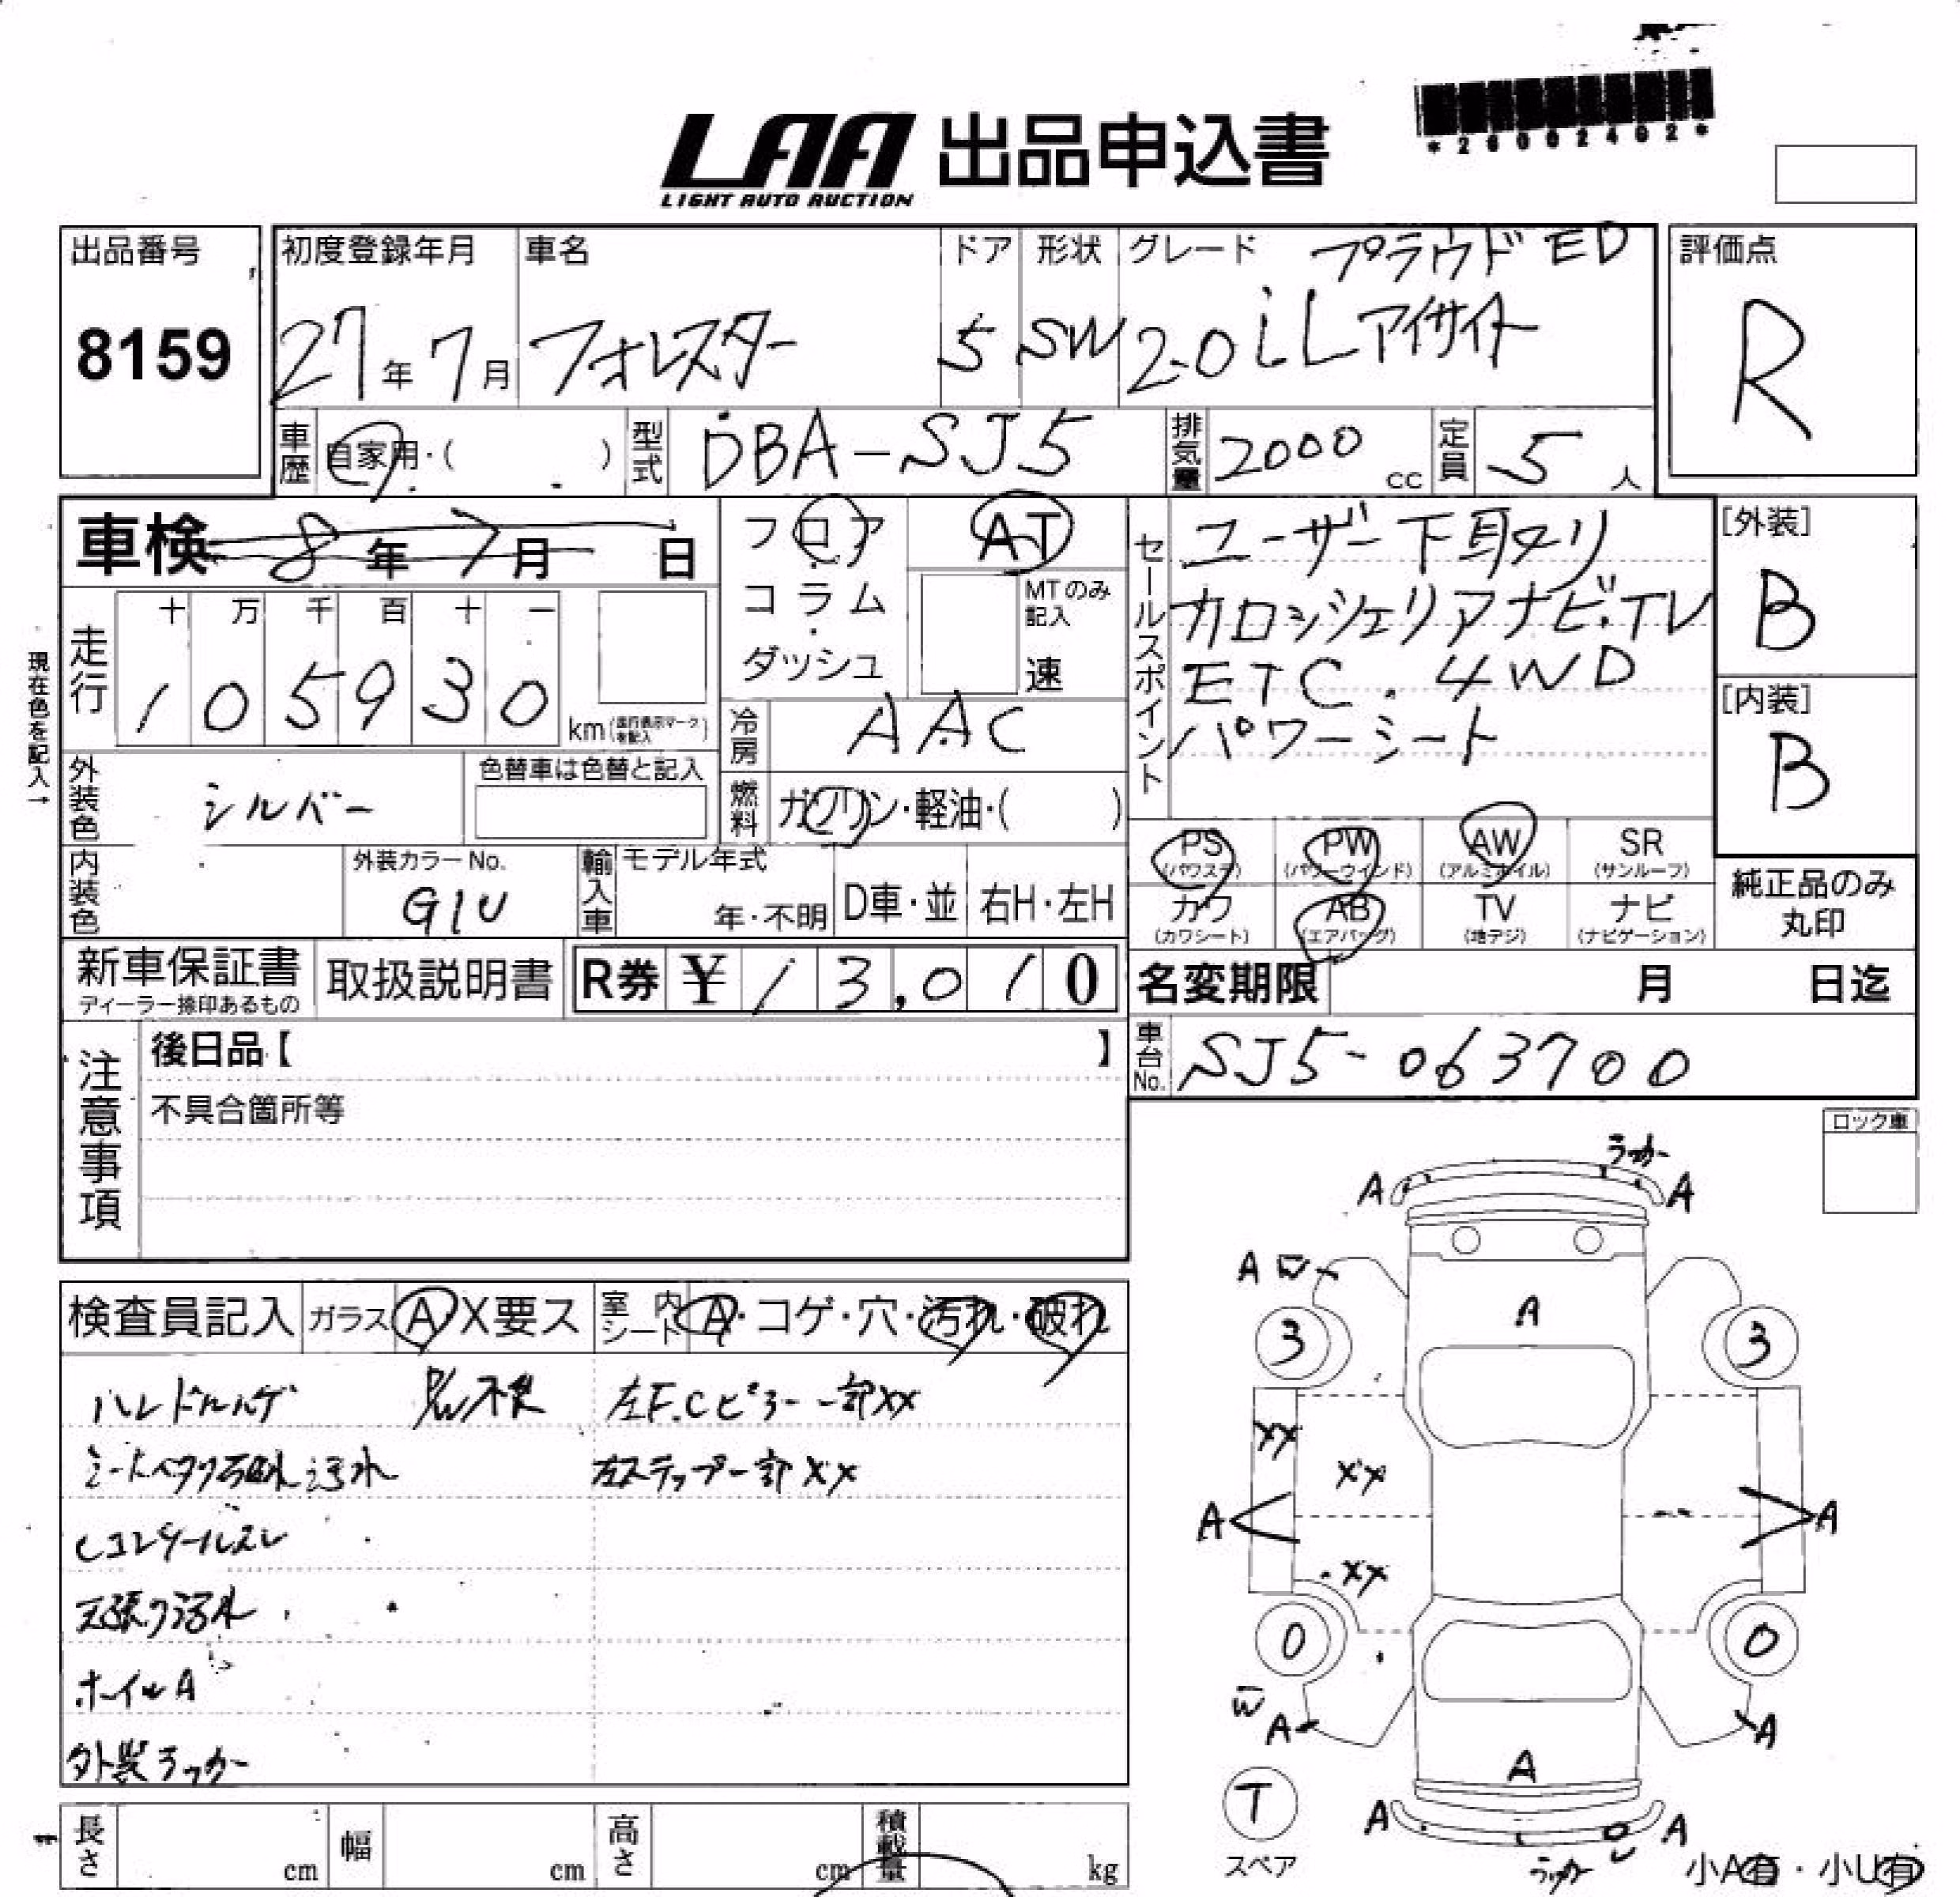 LAA 出品申込書
LIGHT AUTO AUCTION
*26002402*
出品番号
8159
初度登録年月
27年 7月
車名
フォレスター
ドア
5
形状
SW
グレード プラウドED
2.0 iL アイサイト
評価点
R
車歴 自家用・( )
型式 DBA-SJ5
排気量 2000 cc
定員 5 人
車検 8年 7月 日
フロア
コラム
ダッシュ
AT
MTのみ
記入
速
セールスポイント
ユーザー下取り
カロッシェリアナビ・TV
ETC. 4WD
パワーシート
[外装]
B
[内装]
B
現在色を記入→
走行
十 万 千 百 十 一
1 0 5 9 3 0
km(走行表示マークを記入)
冷房 AAC
外装色 シルバー
色替車は色替と記入
燃料 ガソリン・軽油・( )
PS (パワステ)
PW (パワーウインド)
AW (アルミホイル)
SR (サンルーフ)
カワ (カワシート)
AB (エアバッグ)
TV (地デジ)
ナビ (ナビゲーション)
純正品のみ
丸印
内装色
外装カラーNo.
G1U
輸入車 モデル年式
年・不明
D車・並 右H・左H
新車保証書
ディーラー捺印あるもの
取扱説明書
R券 ¥ 1 3,0 1 0
名変期限 月 日迄
車台No. SJ5-063700
注意事項
後日品【 】
不具合箇所等
ロック車
検査員記入 ガラス A X要ス
室内シート A・コゲ・穴・汚れ・破れ
ハンドルハゲ
左F.Cピラー一部XX
シートヘタリ破れ汚れ
左ステップ一部XX
コンソールスレ
天張り汚れ
ホイルA
外装ラッカー
長さ cm
幅 cm
高さ cm
積載量 kg
ラッカー
A A
A W
A
3 3
XX
XX
A A
XX
0 0
W
A A
A
T
スペア
A A
U
ラッカー
小A有・小U有